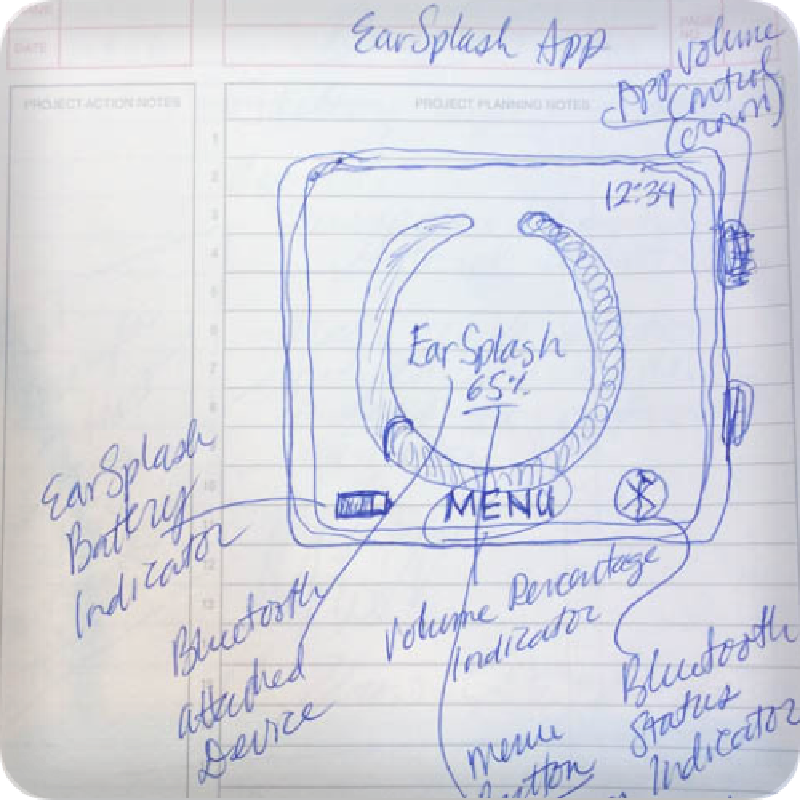 NAME
DATE
PAGE
NO.
EarSplash App
PROJECT ACTION NOTES
PROJECT PLANNING NOTES
App Volume
Control
(crown)
1
2
3
4
5
6
7
8
9
10
12
13
12:34
EarSplash
65%
MENU
EarSplash
Battery
Indicator
Bluetooth
attached
Device
Volume Percentage
Indicator
Menu
Button
Bluetooth
Status
Indicator